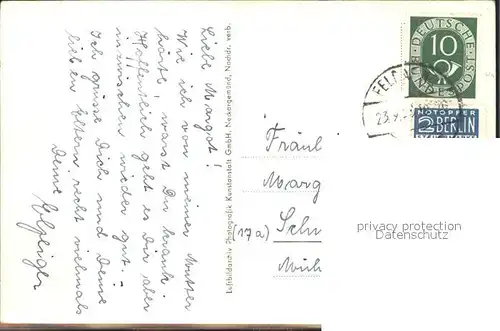 Liebe Margot!
Wie ich von meiner Mutter
hörte, warst Du krank.
Hoffentlich geht es Dir aber
inzwischen wieder gut. –
Ich grüsse Dich und Deine
lieben Eltern recht vielmals
Deine
Luftbildarchiv Photografik Kunstanstalt GmbH. Neckargemünd, Nachdr. verb.
DEUTSCHE BUNDESPOST
10
NOTOPFER
2 BERLIN
STEUER-MARKE
23.
Fräul
Marg
(17a)
privacy protection
Datenschutz